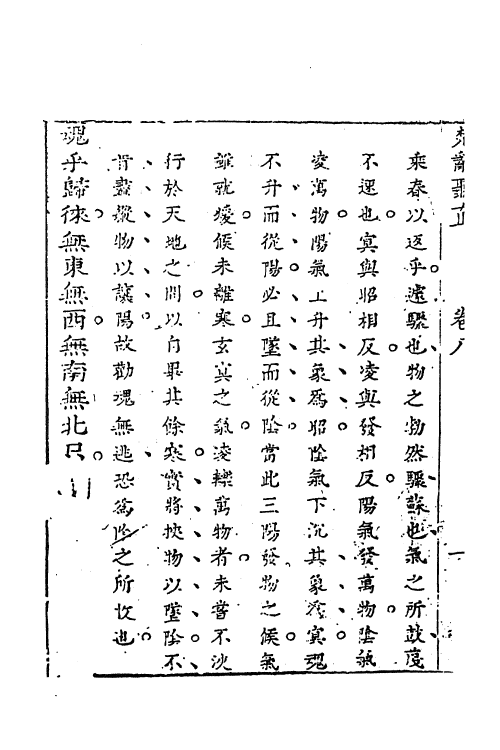 楚辭聽直　卷八　一
乘春以返乎遽驟也物之勃然驟蘇也氣之所鼓復
不遲也冥與昭相反凌與發相反陽氣發萬物陰氣
凌萬物陽氣上升其象為昭陰氣下沉其象為冥魂
不升而從陽必且墜而從陰當此三陽發物之候氣
雖既煖候未離寒玄冥之氣凌轢萬物者未嘗不浹
行於天地之間以自畢其餘寒實將挾物以墜陰不
肯盡縱物以讓陽故勸魂無逃恐為陰之所攸也
魂乎歸徠無東無西無南無北只